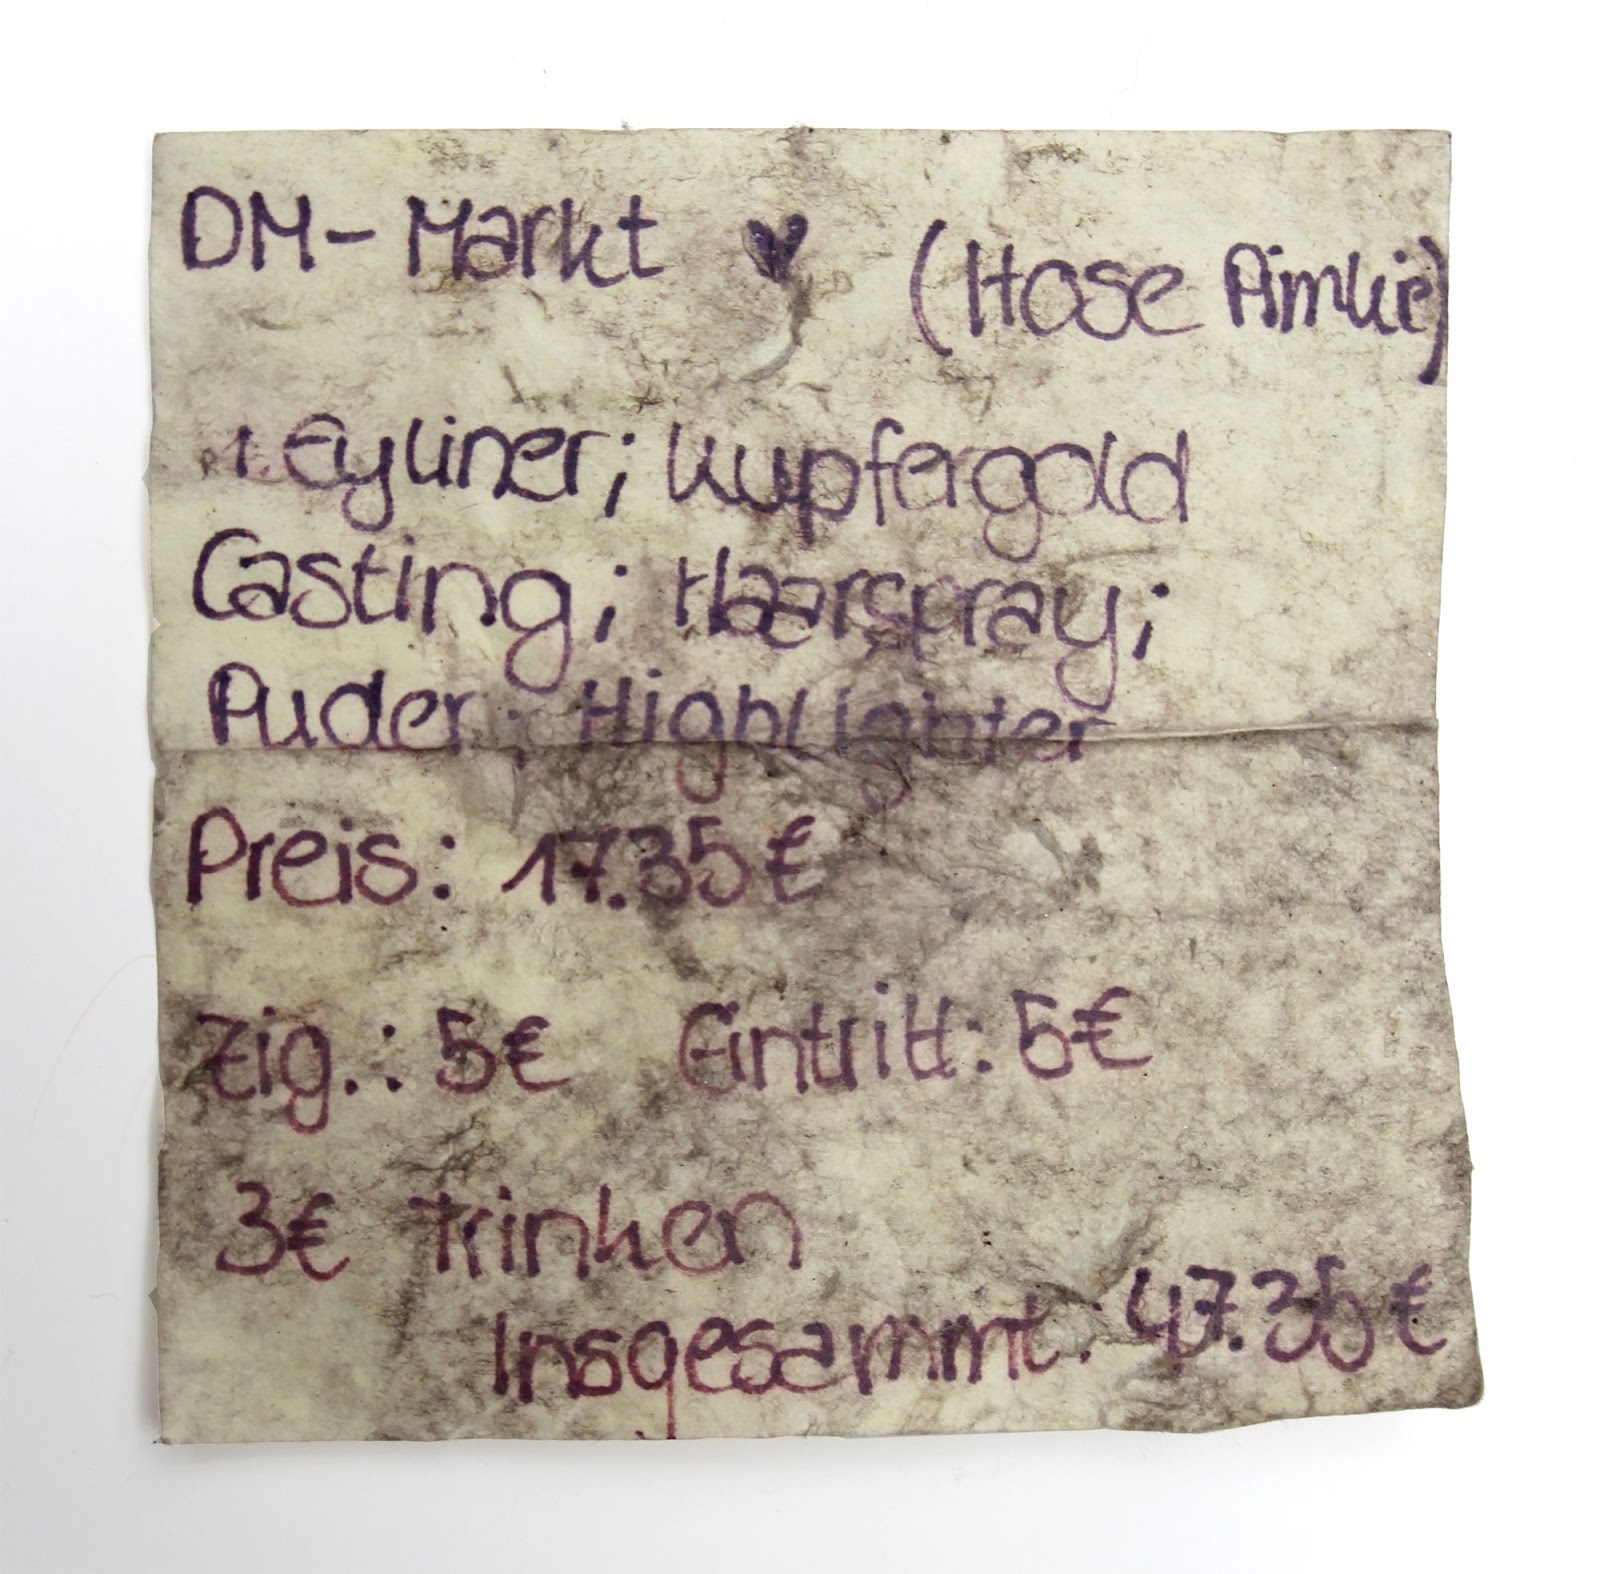 DM-Markt ♥ (Hose Pimkie)
1. Eyliner; Kupfergold
Casting; Haarspray;
Puder; Highlighter
Preis: 17.35€
Zig.: 5€ Eintritt: 5€
3€ Trinken
Insgesammt: 47.35€